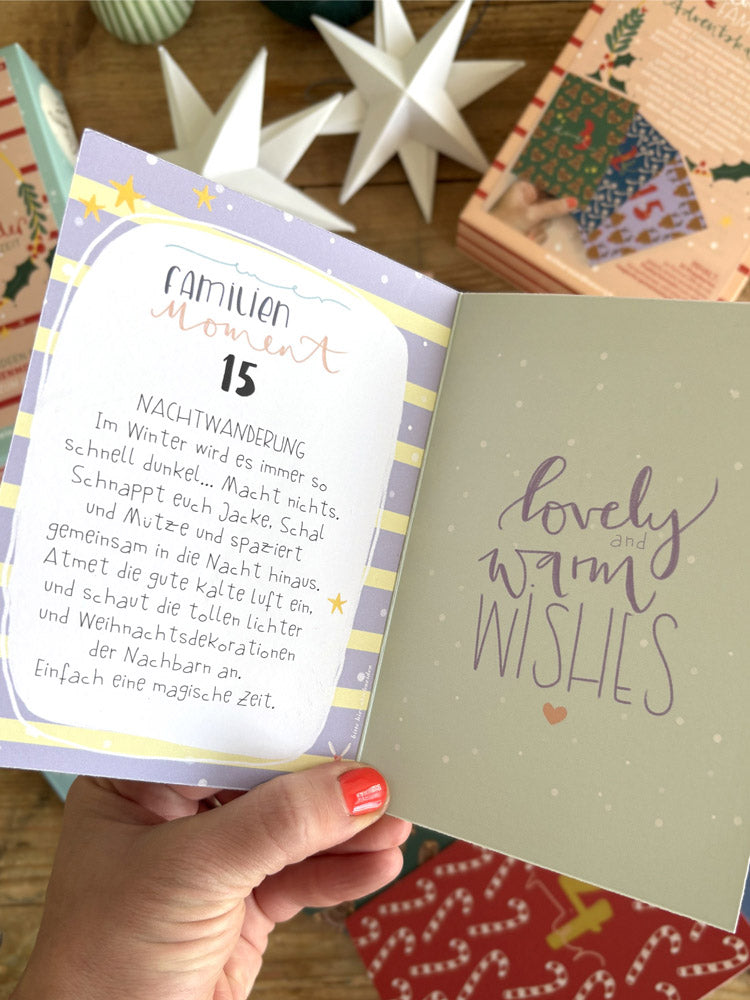 euer
FAMILIEN
Moment
15
NACHTWANDERUNG
Im Winter wird es immer so
schnell dunkel... Macht nichts.
Schnappt euch Jacke, Schal
und Mütze und spaziert
gemeinsam in die Nacht hinaus.
Atmet die gute kalte Luft ein,
und schaut die tollen Lichter
und Weihnachtsdekorationen
der Nachbarn an.
Einfach eine magische Zeit.
lovely
and
warm
WISHES
15
4